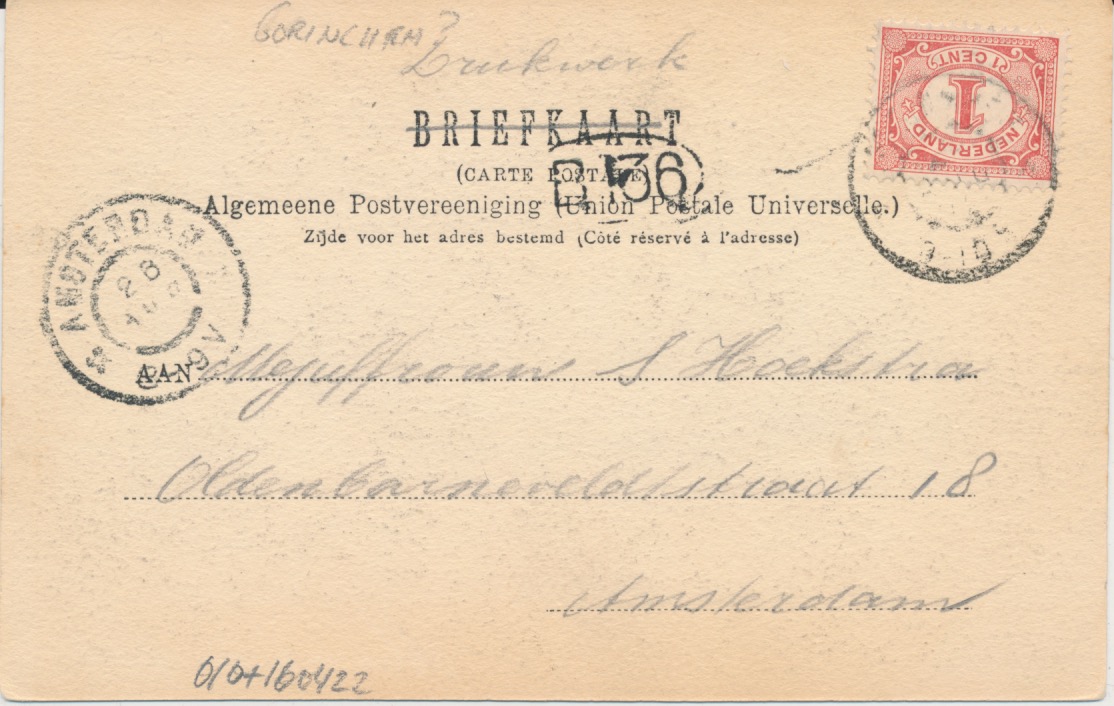 GORINCHEM?
Drukwerk
BRIEFKAART
(CARTE POSTALE)
136
Algemeene Postvereeniging (Union Postale Universelle.)
Zijde voor het adres bestemd (Côté réservé à l'adresse)
1 CENT
1
NEDERLAND
AMSTERDAM
28
AAN Mejuffrouw S Hoekstra
Oldenbarneveldtstraat 18
Amsterdam
010+160422